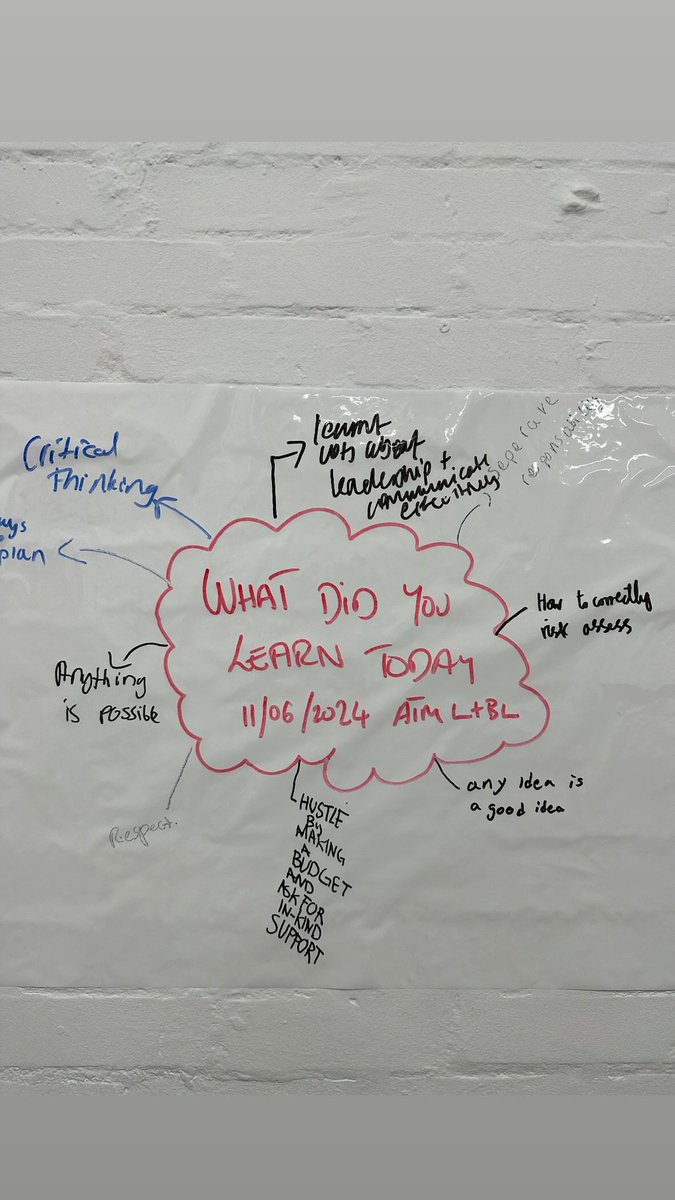 WHAT DID YOU
LEARN TODAY
11/06/2024 ATM L+BL
learnt
lots about
leadership +
communicate
effectively
separate
responsibility
How to correctly
risk assess
any idea is
a good idea
HUSTLE
By
MAKING
A
BUDGET
AND
ASK FOR
IN-KIND
SUPPORT
Respect.
Anything
is possible
plan
Critical
Thinking